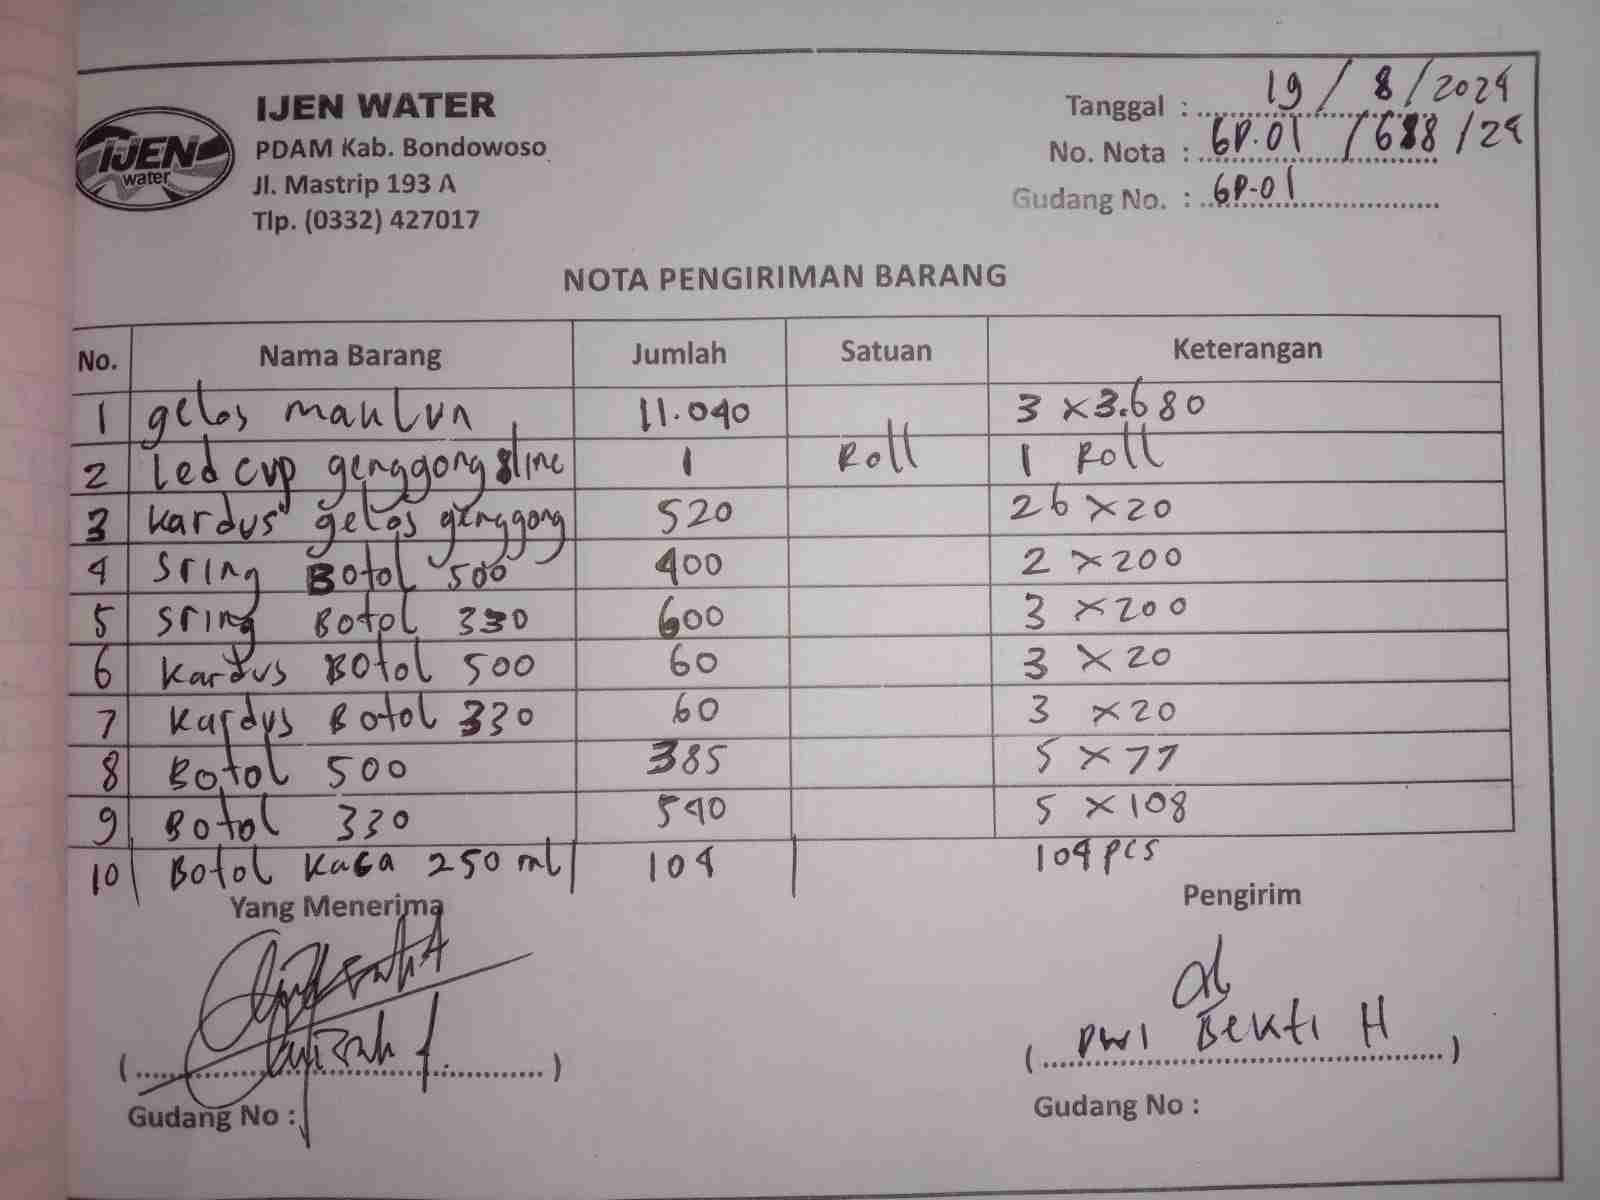 IJEN WATER
PDAM Kab. Bondowoso
Jl. Mastrip 193 A
Tlp. (0332) 427017
IJEN
water
Tanggal : 19 / 8 / 2024
No. Nota : GP.01 / 688 / 24
Gudang No. : GP-01
NOTA PENGIRIMAN BARANG
No. Nama Barang Jumlah Satuan Keterangan
1 gelas maklun 11.040 3 x 3.680
2 Led cup genggong sline 1 Roll 1 Roll
3 Kardus gelas genggong 520 26 x 20
4 Sring Botol 500 400 2 x 200
5 Sring Botol 330 600 3 x 200
6 Kardus Botol 500 60 3 x 20
7 Kardus Botol 330 60 3 x 20
8 Botol 500 385 5 x 77
9 Botol 330 540 5 x 108
10 Botol Kaca 250 ml 104 104 pcs
Yang Menerima Pengirim
( Dwi Bekti H )
Gudang No : Gudang No :